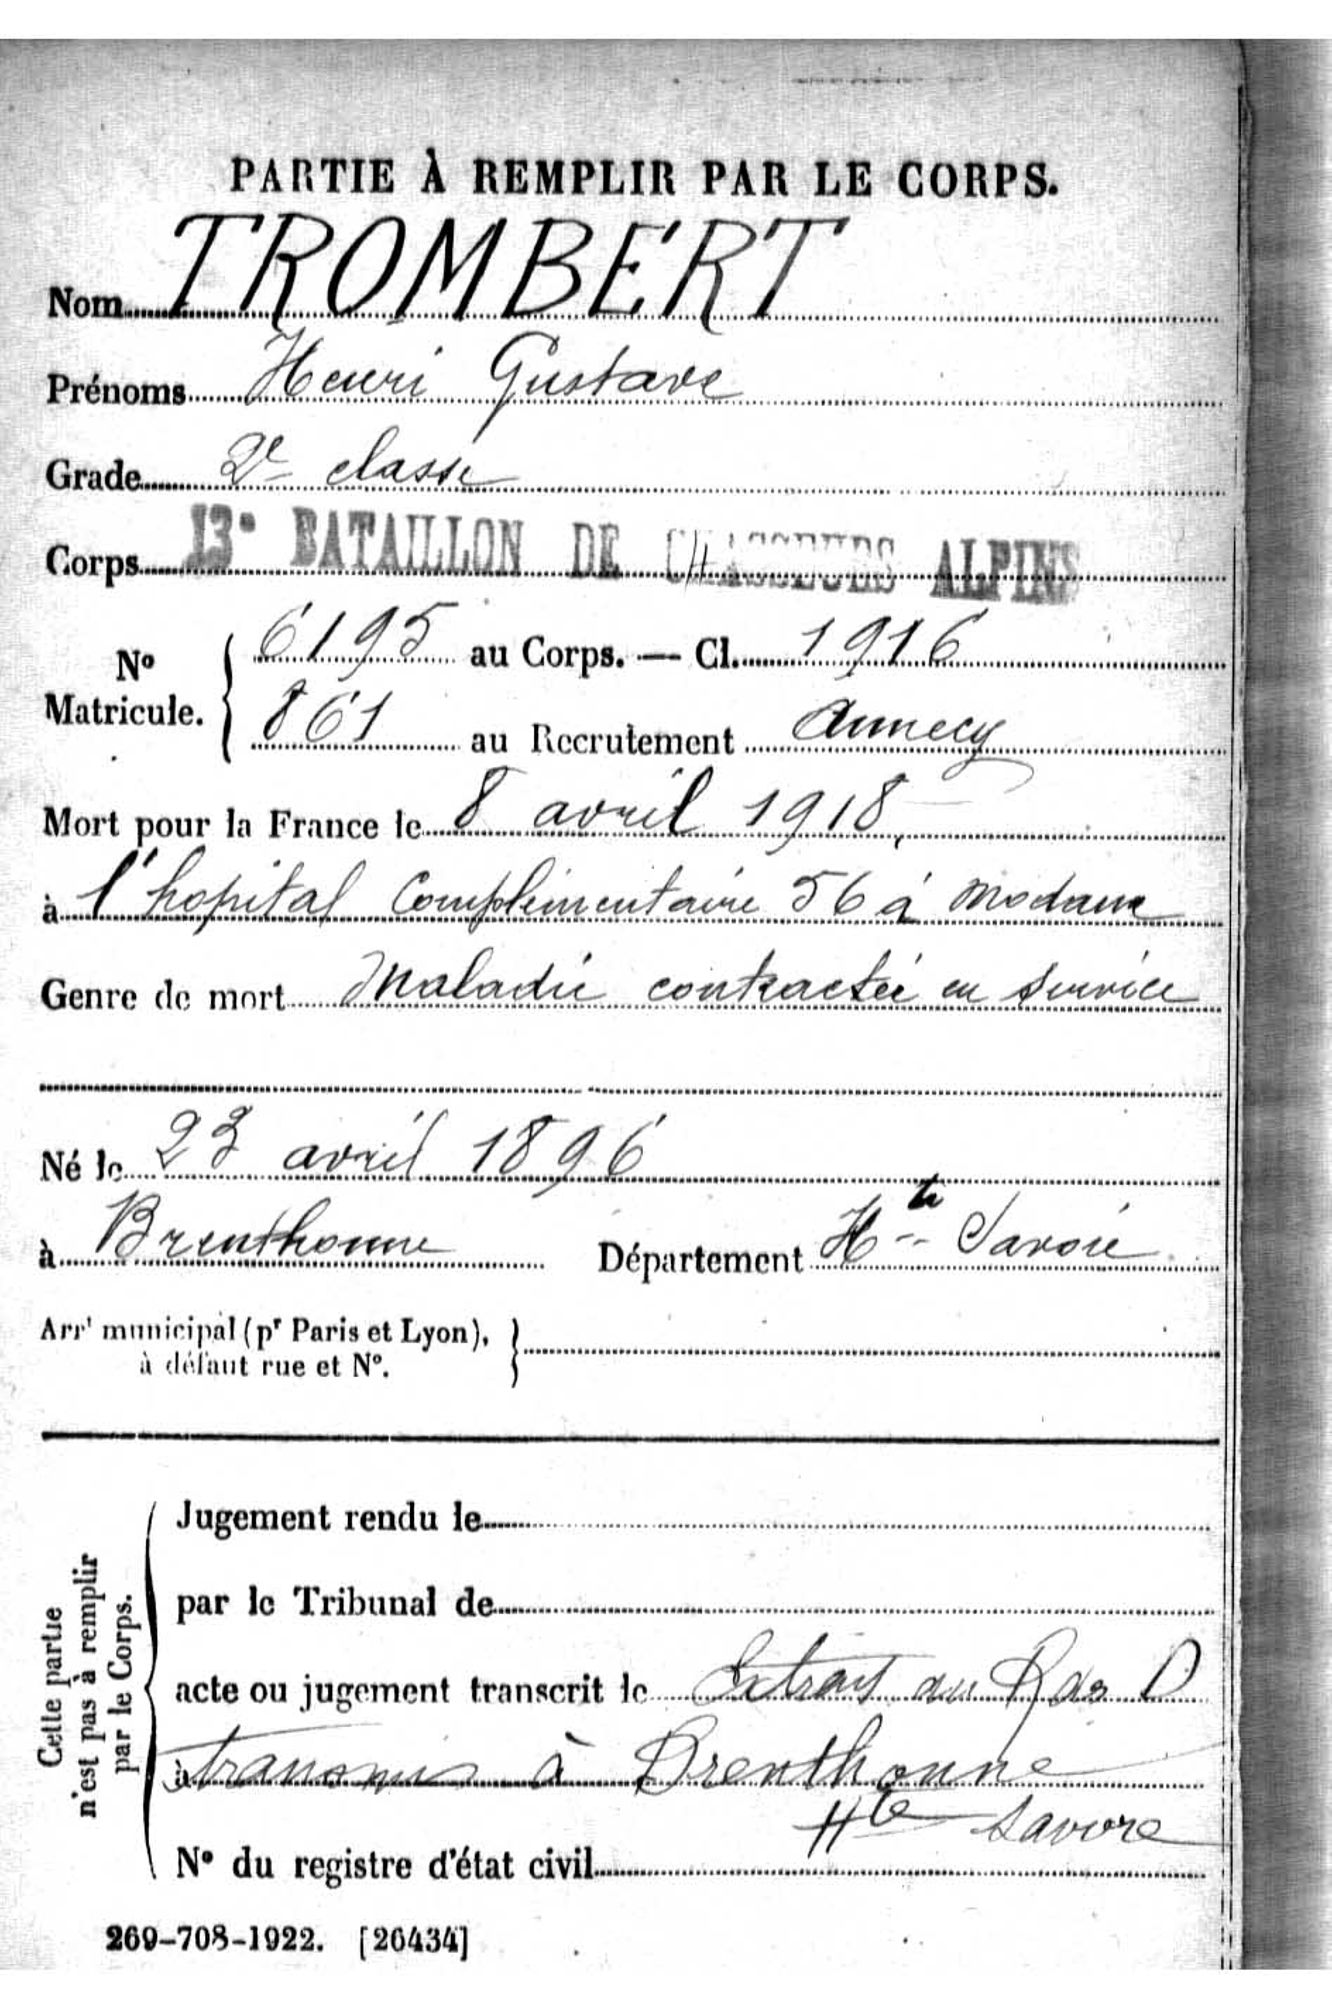 PARTIE À REMPLIR PAR LE CORPS.
Nom TROMBERT
Prénoms Henri Gustave
Grade 2e classe
Corps 13e BATAILLON DE CHASSEURS ALPINS
No Matricule. { 6195 au Corps. — Cl. 1916
861 au Recrutement Annecy
Mort pour la France le 8 avril 1918,
à l'hopital Complémentaire 56 à Modane
Genre de mort Maladie contractée en service
Né le 23 avril 1896
à Brenthonne Département Hte Savoie
Arrt municipal (pr Paris et Lyon), }
à défaut rue et No.
Cette partie
n'est pas à remplir
par le Corps.
Jugement rendu le
par le Tribunal de
acte ou jugement transcrit le Extrait du R des D
à transmis à Brenthonne
Hte Savoie
No du registre d'état civil
269-708-1922. [26434]